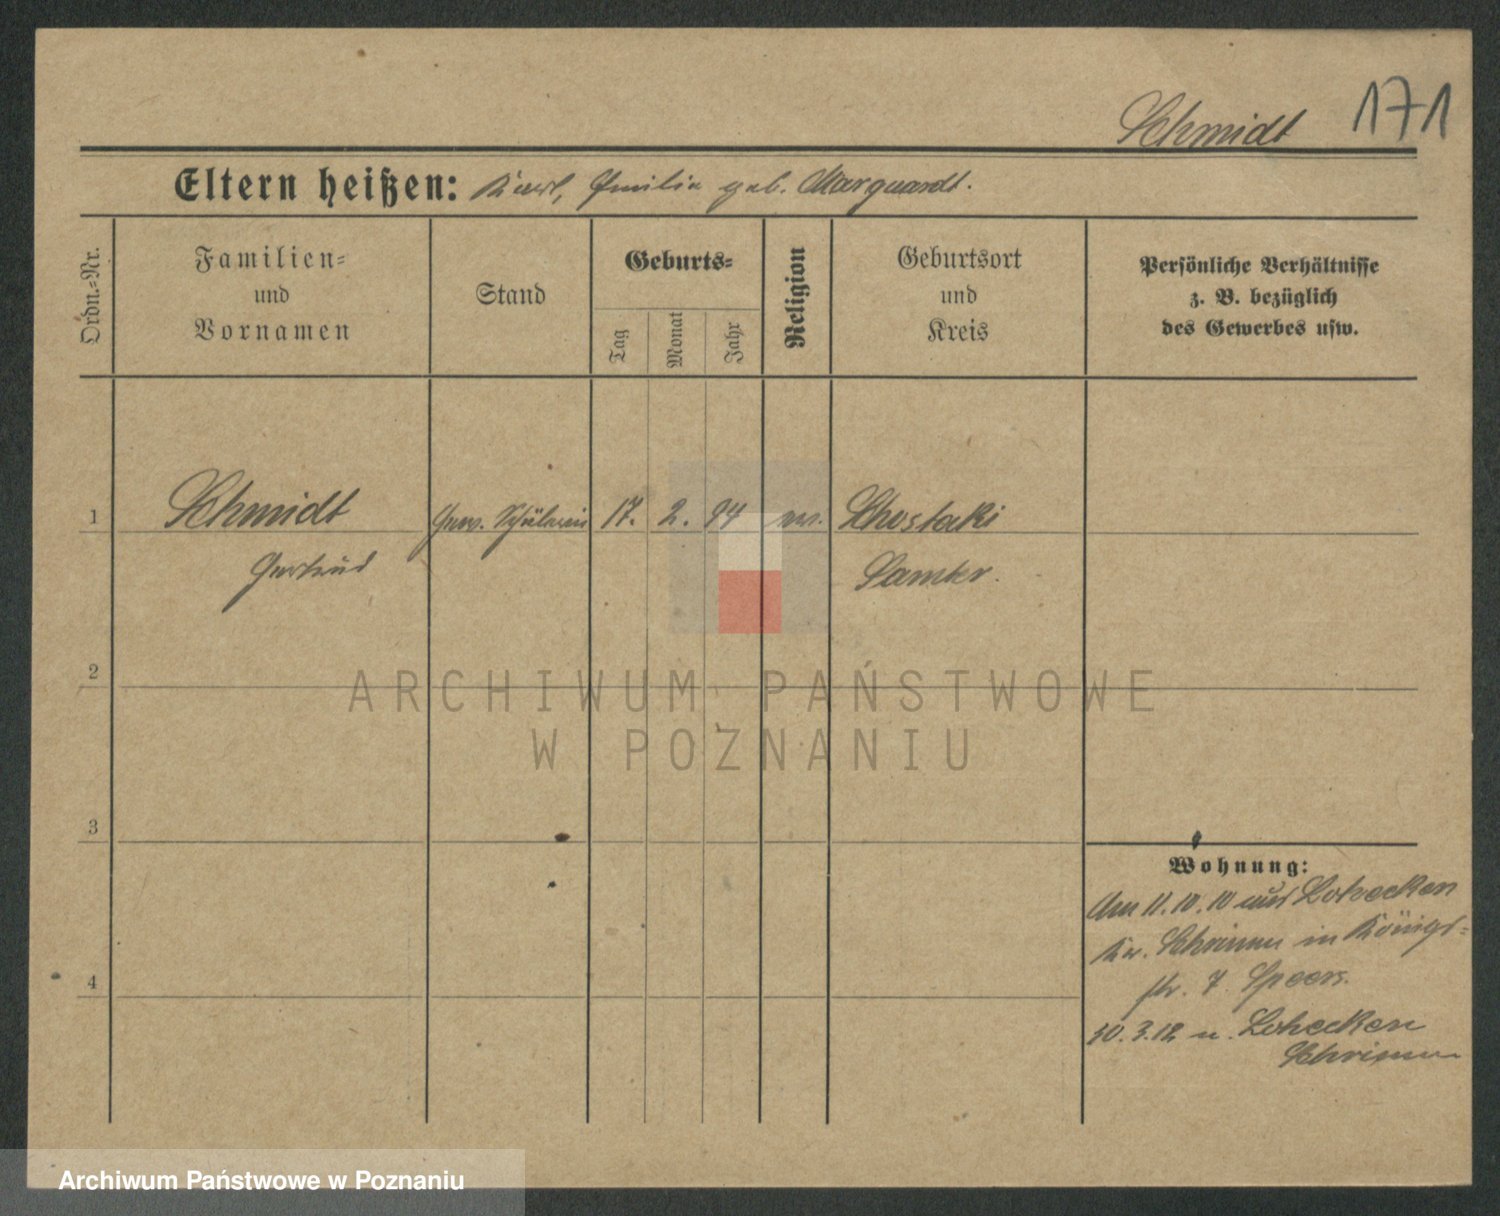 Schmidt 171
Eltern heißen: Karl, Emilie geb. Marquardt.
Ordn.-Nr.
Familien-
und
Vornamen
Stand
Geburts-
Tag
Monat
Jahr
Religion
Geburtsort
und
Kreis
Persönliche Verhältnisse
z. B. bezüglich
des Gewerbes usw.
1 Schmidt Schülerin 17. 2. 94 Chostaki
Gertrud Samter.
2
ARCHIWUM PAŃSTWOWE
W POZNANIU
3
Wohnung:
Am 11.10.10 aus Lohecken
Kr. Schrimm in Königs-
str. 7. Speers.
10.3.12 n. Lohecken
Schrimm
4
Archiwum Państwowe w Poznaniu